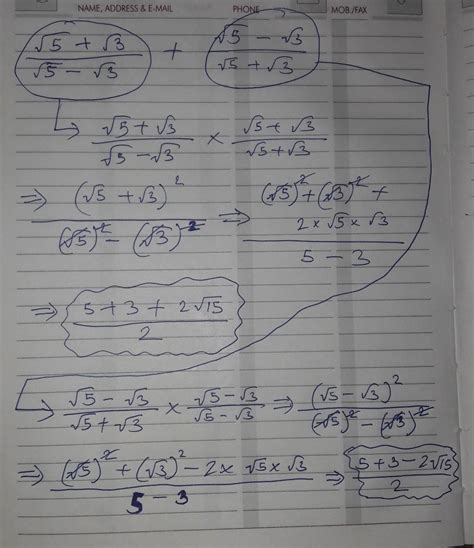 NAME, ADDRESS & E-MAIL PHONE MOB./FAX
(√5 + √3)/(√5 − √3) + (√5 − √3)/(√5 + √3)
→ (√5 + √3)/(√5 − √3) × (√5 + √3)/(√5 + √3)
⇒ (√5 + √3)²/((√5)² − (√3)²) ⇒ ((√5)² + (√3)² + 2 × √5 × √3)/(5 − 3)
⇒ (5 + 3 + 2√15)/2
→ (√5 − √3)/(√5 + √3) × (√5 − √3)/(√5 − √3) ⇒ (√5 − √3)²/((√5)² − (√3)²)
⇒ ((√5)² + (√3)² − 2 × √5 × √3)/(5 − 3) ⇒ (5 + 3 − 2√15)/2